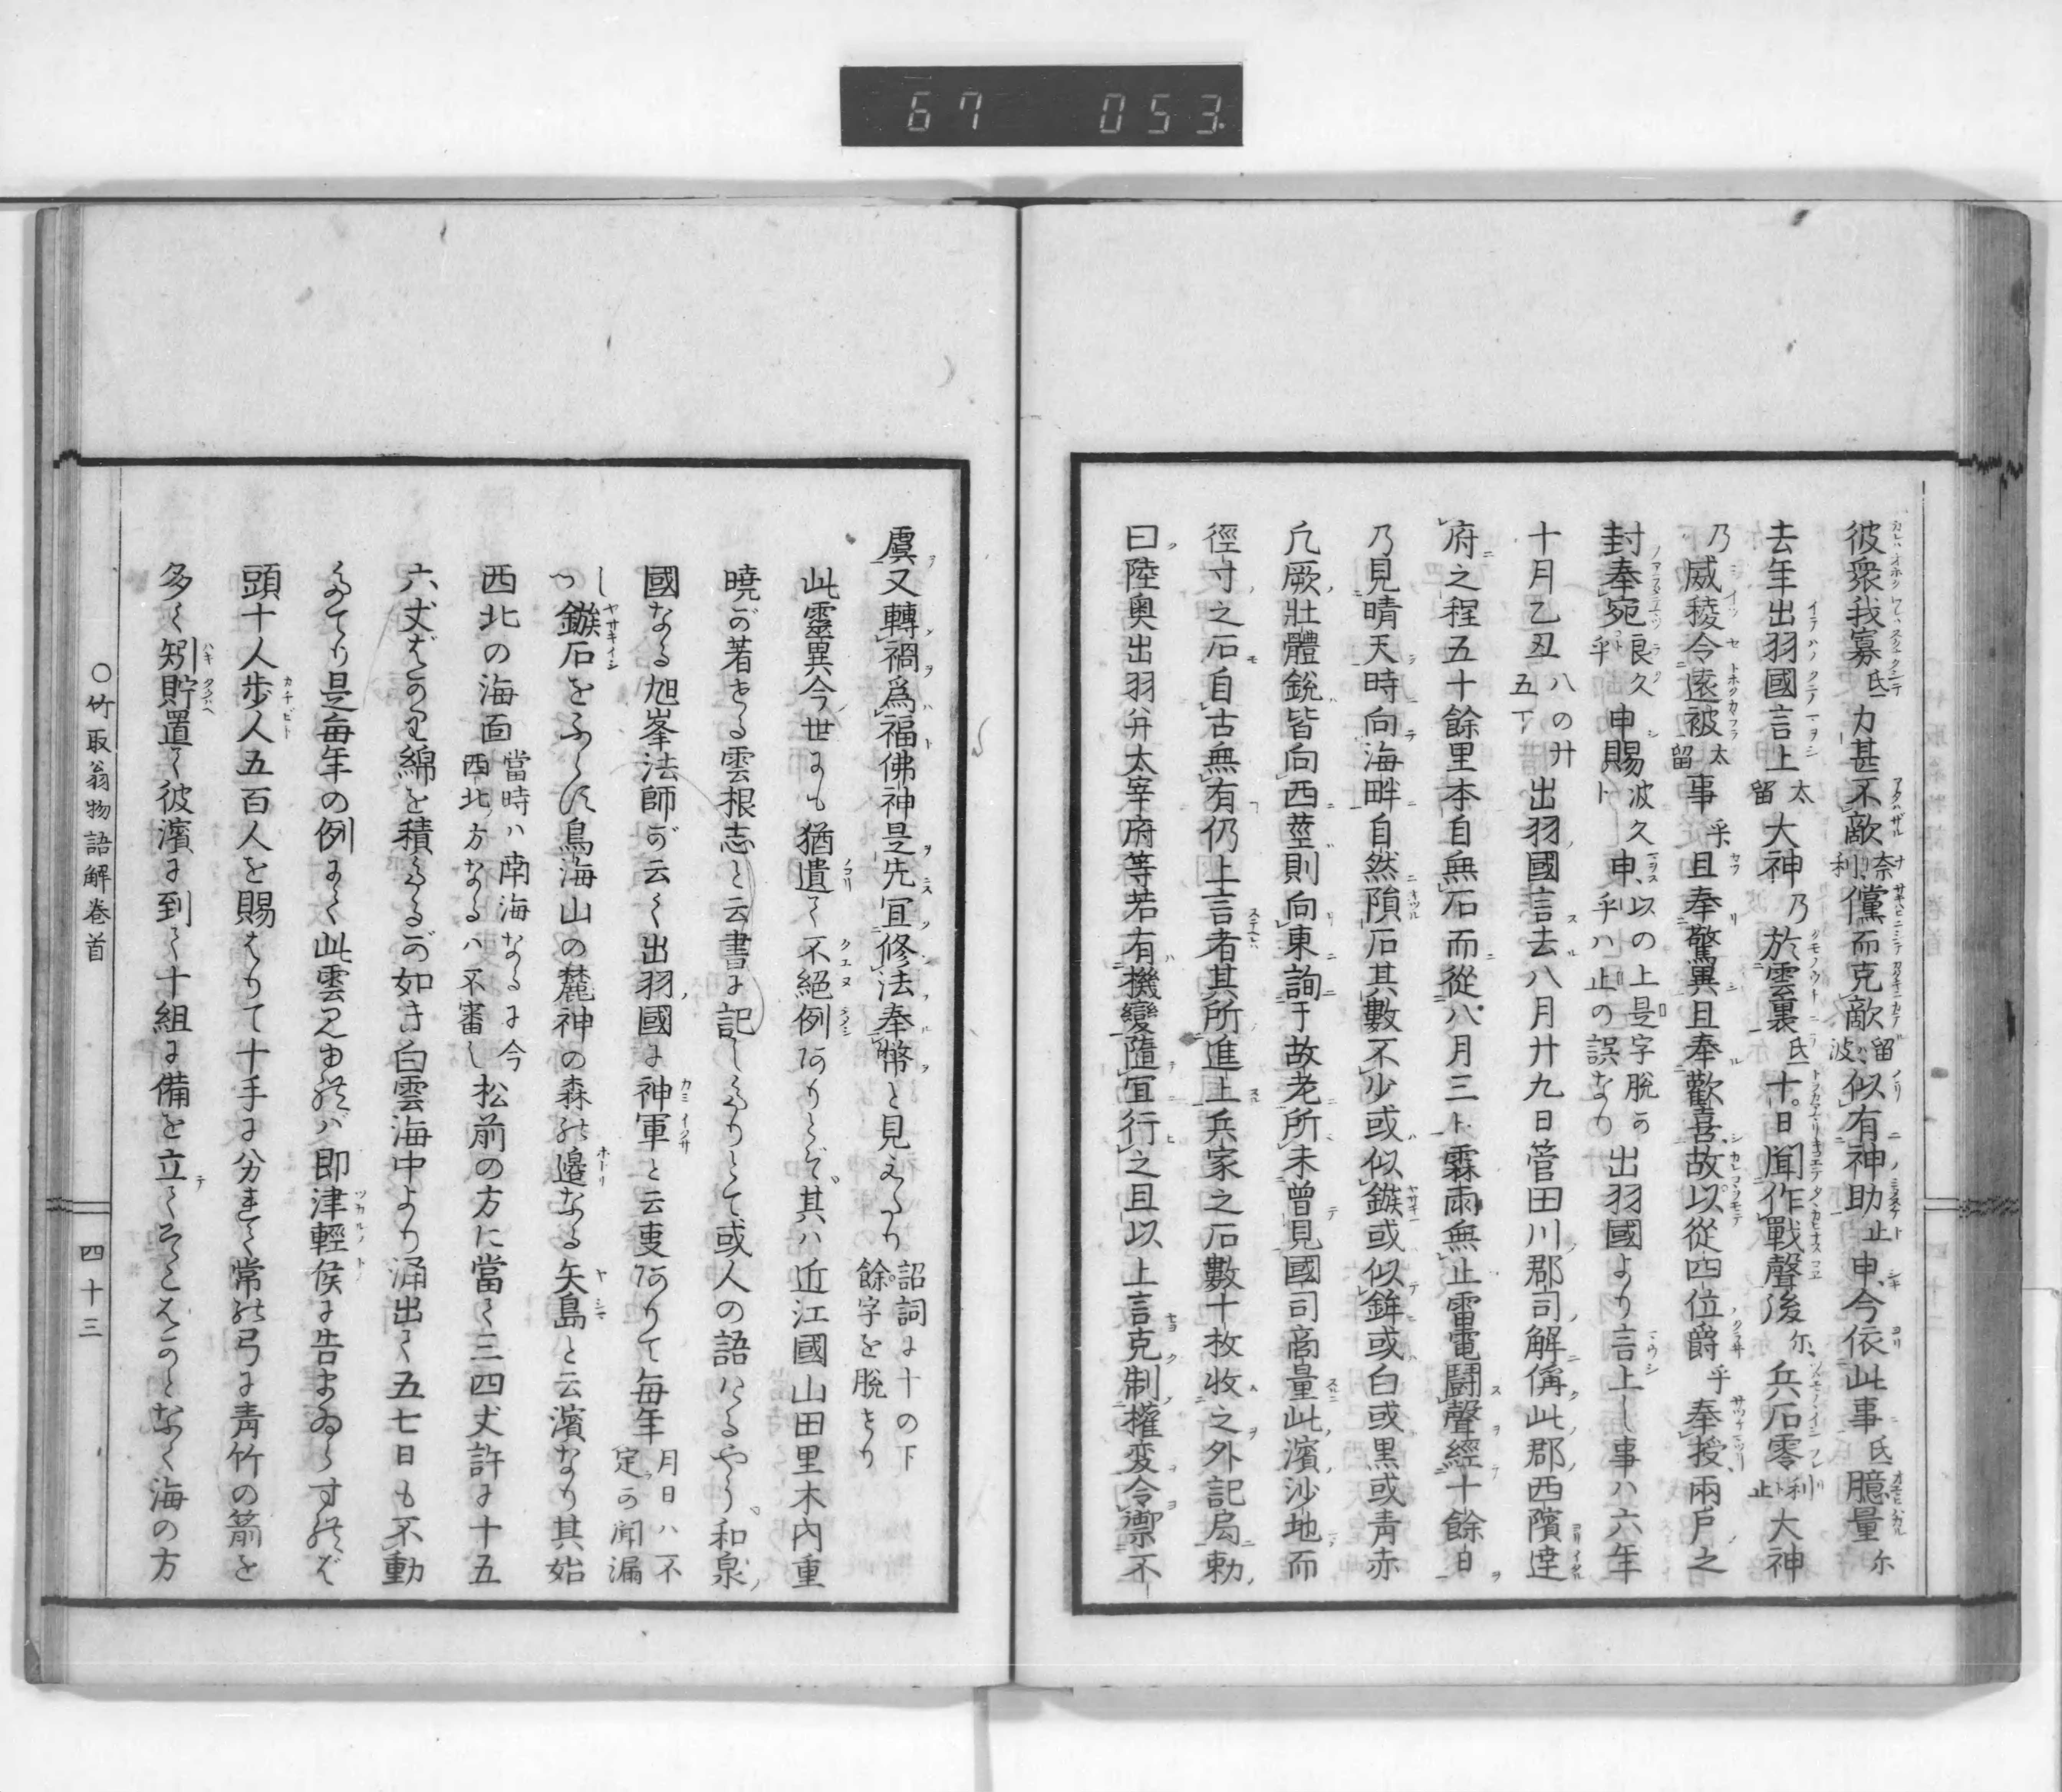 67 053
彼衆我寡氐力甚不敵奈利儻而克敵留波似有神助止申今依此事氐臆量尓
去年出羽國言上太留大神乃於雲裏氐十日間作戰聲後尓兵石零利止大神
乃威稜令遠被太留事乎且奉驚異且奉歡喜故以從四位爵乎奉授兩戸之
封奉宛良久乎申賜波久ト申以の上是字脱か乎ハ止の誤なり出羽國より言上し事ハ六年
十月乙丑八の廿五丁出羽國言去八月廿九日管田川郡司解偁此郡西濱達
府之程五十餘里本自無石而從八月三ト霖雨無止雷電鬪聲經十餘日
乃見晴天時向海畔自然隕石其數不少或似鏃或似鉾或白或黒或青赤
凡厥壯體鋭皆向西莖則向東詢于故老所未曽見國司商量此濱沙地而
徑寸之石自古無有仍上言者其所進上兵家之石數十枚收之外記局勅
曰陸奥出羽并太宰府等若有機變隨宜行之且以上言克制權変令禦不
虞又轉禍爲福佛神是先宜修法奉幣と見えたり詔詞に十の下餘字を脱せり
此靈異今世にも猶遺て不絕例ありとぞ其ハ近江國山田里木内重
曉が著せる雲根志と云書に記しゝりとて或人の語けるやう和泉
國なる旭峯法師が云く出羽國に神軍と云叓ありて毎年月日ハ不定かの聞漏しつ
鏃石をふらす鳥海山の麓神の森の邊なる矢島と云濱なり其始
西北の海面當時ハ南海なるに今西北方なるハ不審し松前の方に當て三四丈許に十五
六丈ばかり綿を積たるが如き白雲海中より涌出て五七日も不動
あてり是毎年の例にて此雲見ゆれバ即津輕侯に告まゐらすれば
頭十人歩人五百人を賜はりて十手に分ちて常の弓に青竹の箭を
多く矧貯置て彼濱に到て十組に備を立てそこはかとなく海の方
○竹取翁物語解卷首
四十三